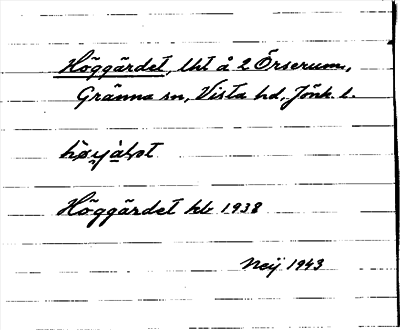 Höggärdet, lht å 2 Örserum,
Gränna sn, Vista hd, Jönk. l.
Höggärdet kb 1938
Neij 1943